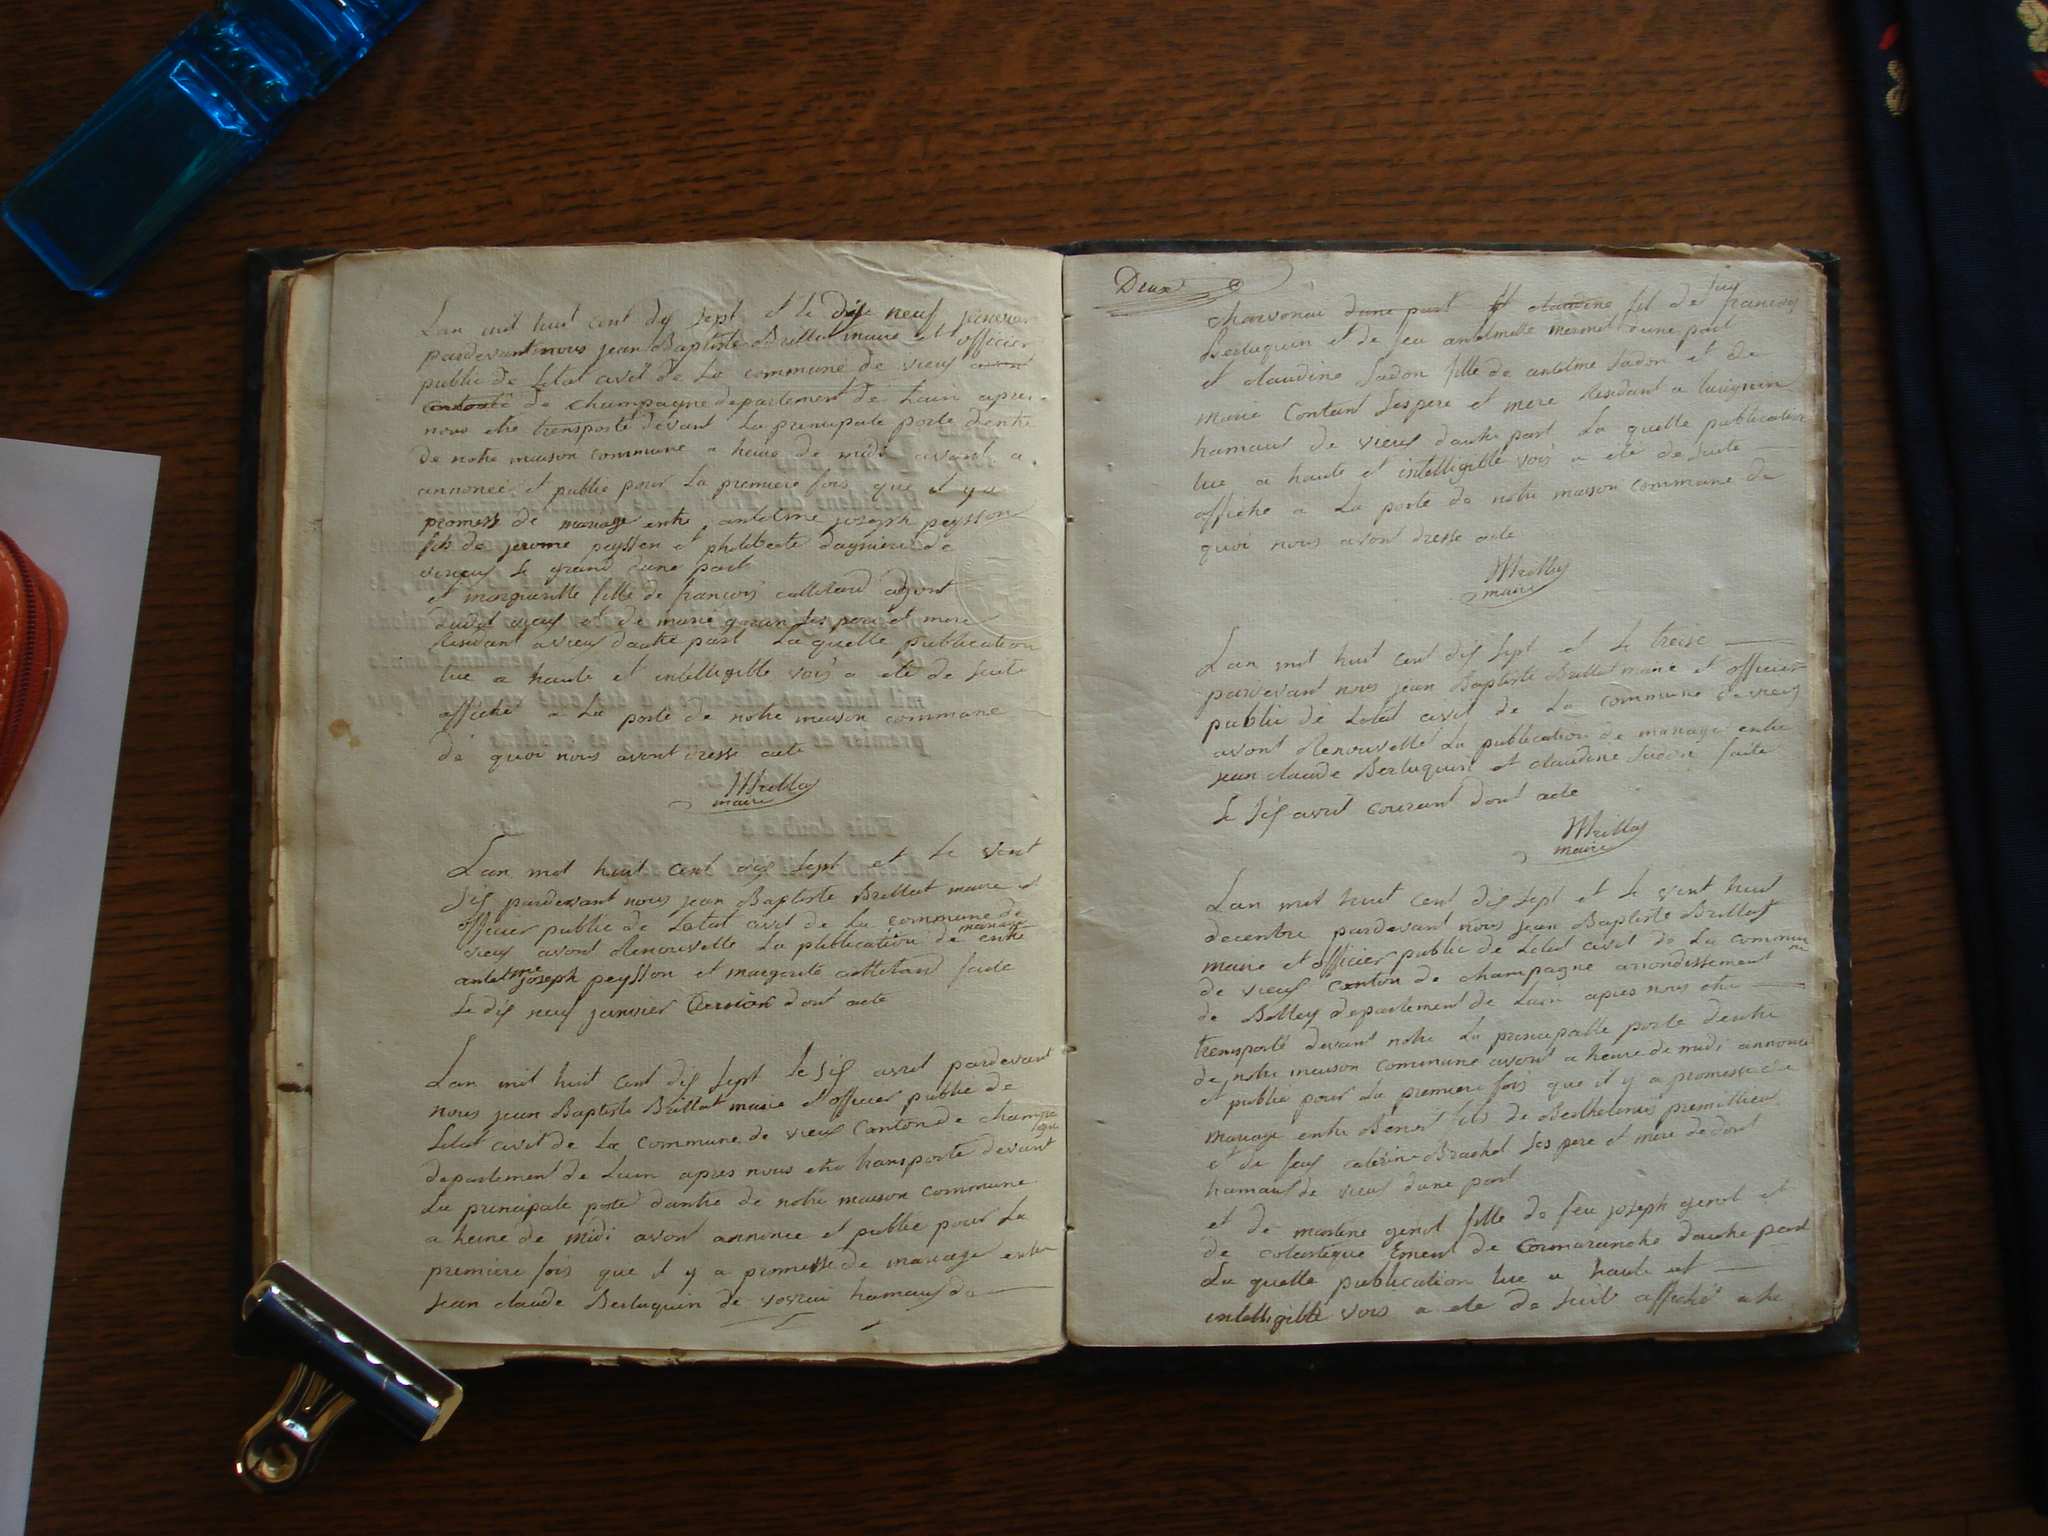 Lan mil huit cent dix sept et le dix neuf janvier
pardevant nous jean Baptiste Brillat maire et officier
public de Letat civil de La commune de vieux
de champagne departement de Lain apres
nous etre transporté devant La principale porte dentre
de notre maison commune a heure de midi avont a
annoncé et publie pour La premiere fois que il y a
promess de mariage entre antelme joseph peysson
fils de jerome peysson et philiberte dagnieu de
virieux Le grand dune part
et marguerite fille de françois
et de marie Ses pere et mere
Residant a vieux dautre part La quelle publication
lue a haute et intelligible voix a eté de suite
affiché a La porte de notre maison commune
de quoi nous avont dressé acte
Brillat
maire
Lan mil huit cent dix sept et Le vent
Six pardevant nous jean Baptiste Brillat maire et
officier public de Letat civil de La commune de
vieux avont Renouvelle La publication de mariage entre
antelme joseph peysson et margerite faite
Le dix neuf janvier dernier dont acte
Lan mil huit cent dix sept Le six avril pardevant
nous jean Baptiste Brillat maire et officier public de
Letat civil de La commune de vieux Canton de champagne
departement de Lain apres nous etre transporté devant
La principale porte dantre de notre maison commune
a heure de midi avont annonce et publie pour La
premiere fois que il y a promesse de mariage entre
jean claude Berluquin de vovrai hamaux de
Deux
charvonai dune part et claudine fil de feu francois
Berluquin et de feu antelmette mermet dune part
et claudine Sadon fille de antelme Sadon et de
marie Contant Ses pere et mere Residant a
hamaux de vieux dautre part La quelle publication
lue a haute et intelligible voix a eté de suite
affiché a La porte de notre maison commune de
quoi nous avont dresse acte
Brillat
maire
Lan mil huit cent dix sept et Le treise
pardevant nous jean Baptiste Brillat maire et officier
public de Letat civil de La commune de vieux
avont Renouvellé La publication de mariage entre
jean claude Berluquin et claudine Sadon faite
Le Six avril courant dont acte
Brillat
maire
Lan mil huit cent dix sept et Le vent huit
decembre pardevant nous jean Baptiste Brillat
maire et officier public de Letat civil de La commune
de vieux Canton de champagne arrondissement
de Belley departement de Lain apres nous etre
transporté devant notre La principalle porte dentre
de notre maison commune avont a heure de midi annoncé
et publié pour La premiere fois que il y a promesse de
mariage entre Benoit fils de Berthelemis premillieu
et de feux caterine Brachet Ses pere et mere de dont
hamaux de vieux dune part
et de marlene genot fille de feu joseph genot et
de colastique Ement de Cormaranche dautre part
La quelle publication lue a haute et
intelligible voix a ete de suit affiché a la